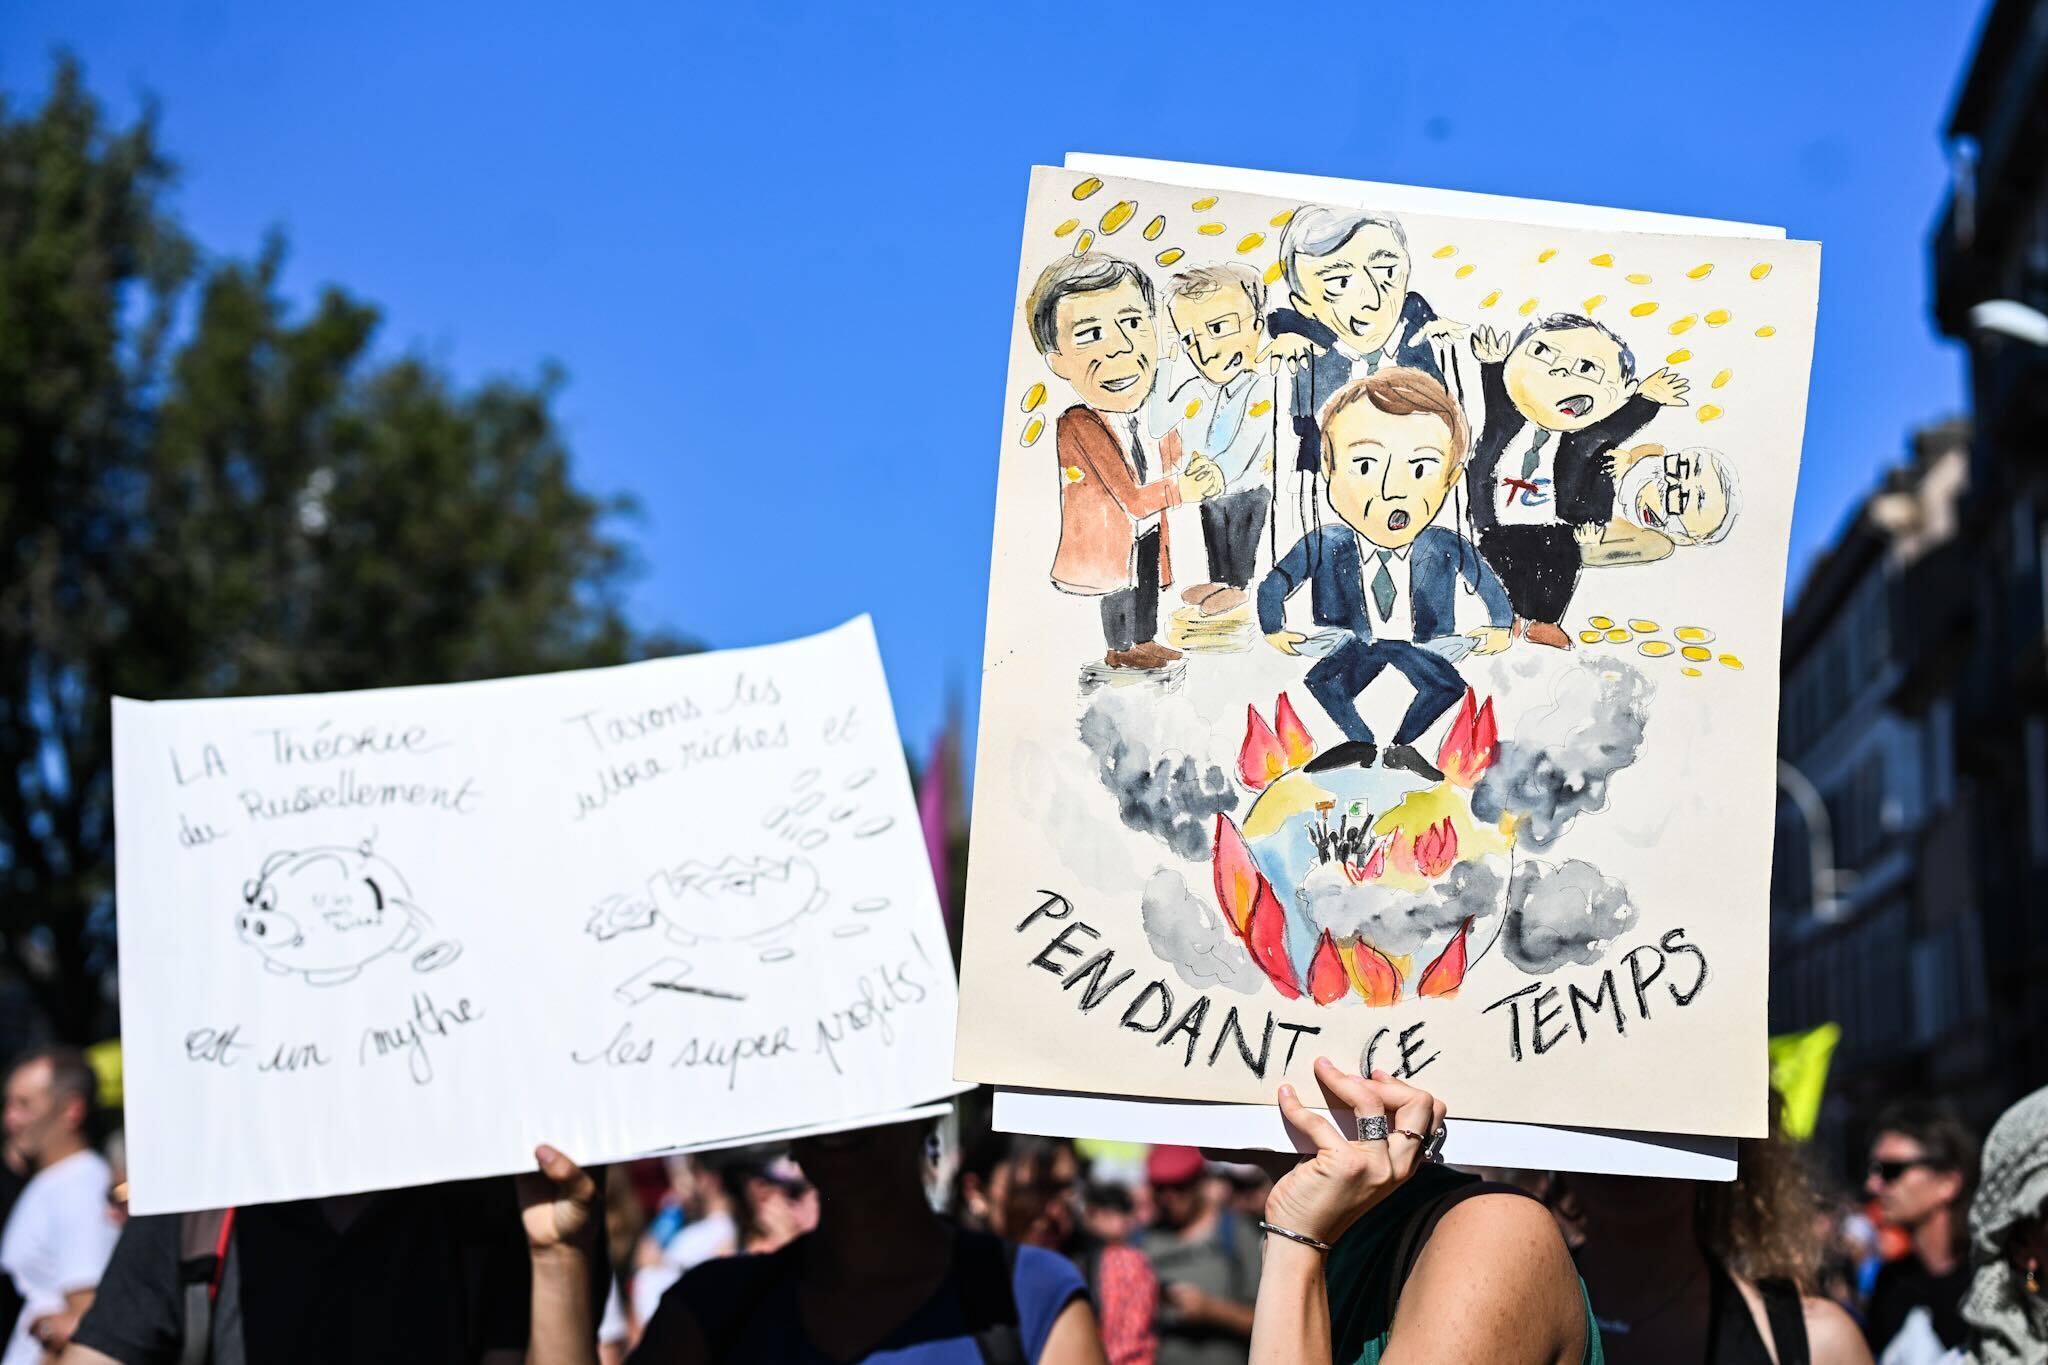 LA Théorie
du Ruissellement
est un mythe
Taxons les
ultra riches et
les super profits!
TC
PENDANT CE TEMPS